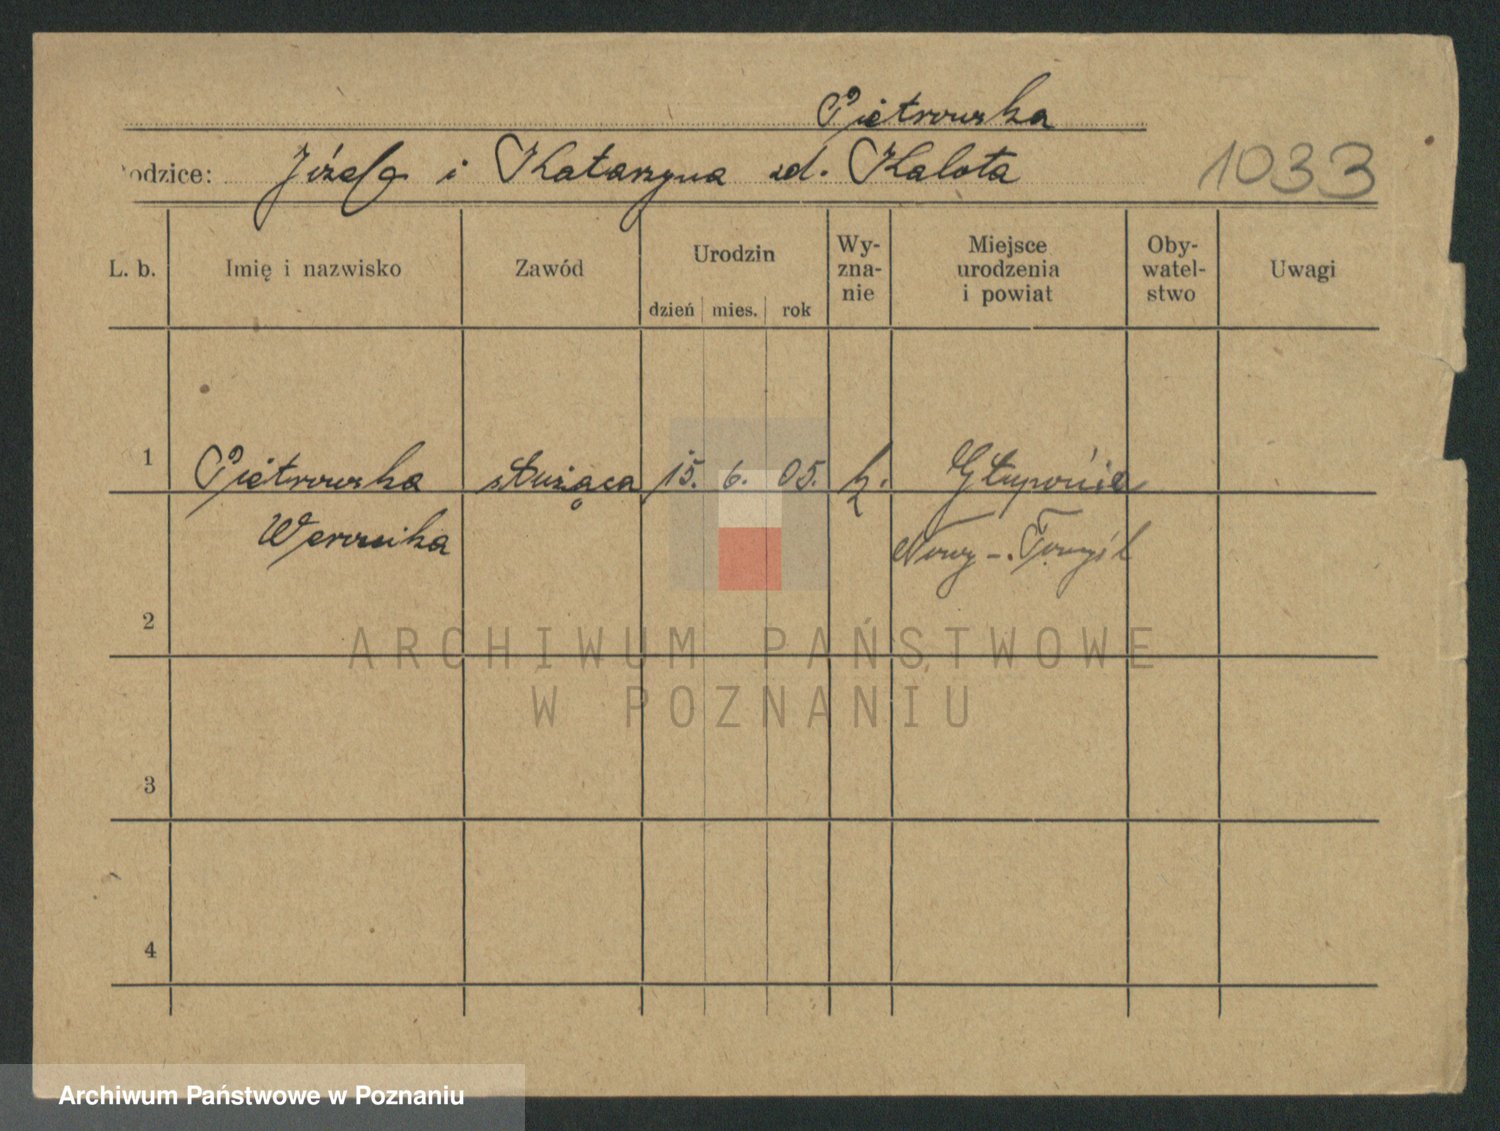 Pietrowska
odzice: Józef i Katarzyna zd. Kalota
1033
L. b. Imię i nazwisko Zawód Urodzin dzień mies. rok Wy-zna-nie Miejsce urodzenia i powiat Oby-watel-stwo Uwagi
1 Pietrowska służąca 15. 6. 05. k. Głuponie
Weronika Nowy-Tomyśl
2
3
4
ARCHIWUM PAŃSTWOWE
W POZNANIU
Archiwum Państwowe w Poznaniu